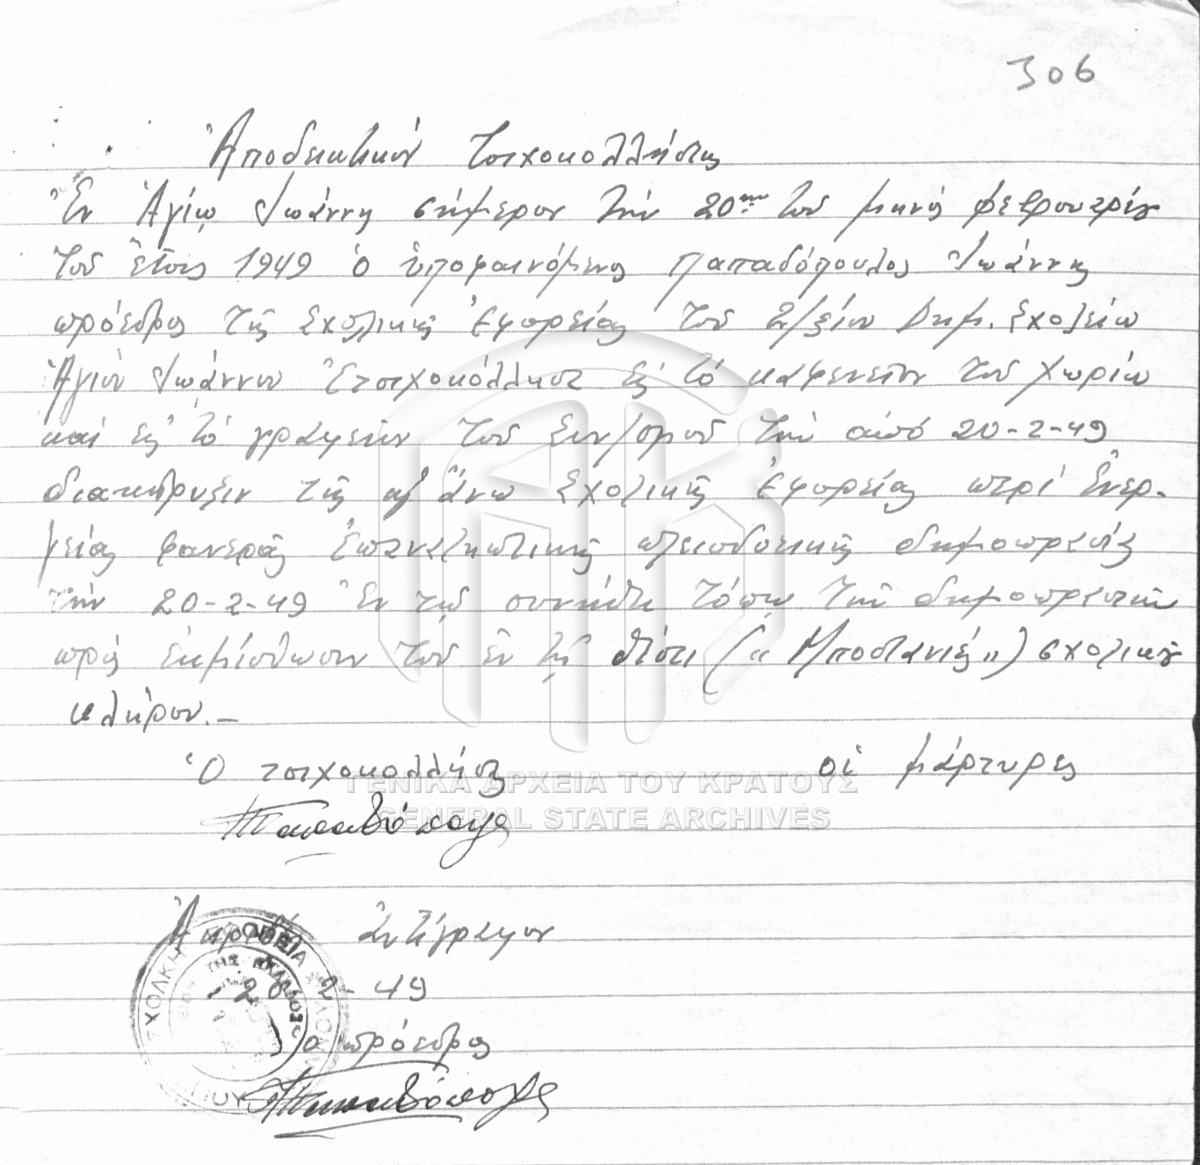 306
Ἀποδεικτικόν τοιχοκολλήσεως
Ἐν Ἁγίῳ Ἰωάννῃ σήμερον τήν 20ην τοῦ μηνός Φεβρουαρίου
τοῦ ἔτους 1949 ὁ ὑποφαινόμενος Παπαδόπουλος Ἰωάννης
πρόεδρος τῆς Σχολικῆς Ἐφορείας τοῦ 2/ξίου Δημ. Σχολείου
Ἁγίου Ἰωάννου ἐτοιχοκόλλησα εἰς τό καφενεῖον τοῦ χωρίου
καί εἰς τό γραφεῖον τοῦ Συν/σμοῦ τήν ἀπό 20-2-49
διακήρυξιν τῆς ὡς ἄνω Σχολικῆς Ἐφορείας περί ἐνερ-
γείας φανερᾶς ἐπαναληπτικῆς πλειοδοτικῆς δημοπρασίας
τήν 20-2-49 ἐν τῷ συνήθει τόπῳ τῶν δημοπρασιῶν
πρός ἐκμίσθωσιν τοῦ ἐν τῇ θέσει («Μποστανιές») σχολικοῦ
κλήρου.—
Ὁ τοιχοκολλήσας οἱ μάρτυρες
Παπαδόπουλος
Ἀκριβές ἀντίγραφον
20-2-49
Ὁ πρόεδρος
Παπαδόπουλος
ΓΕΝΙΚΑ ΑΡΧΕΙΑ ΤΟΥ ΚΡΑΤΟΥΣ
GENERAL STATE ARCHIVES